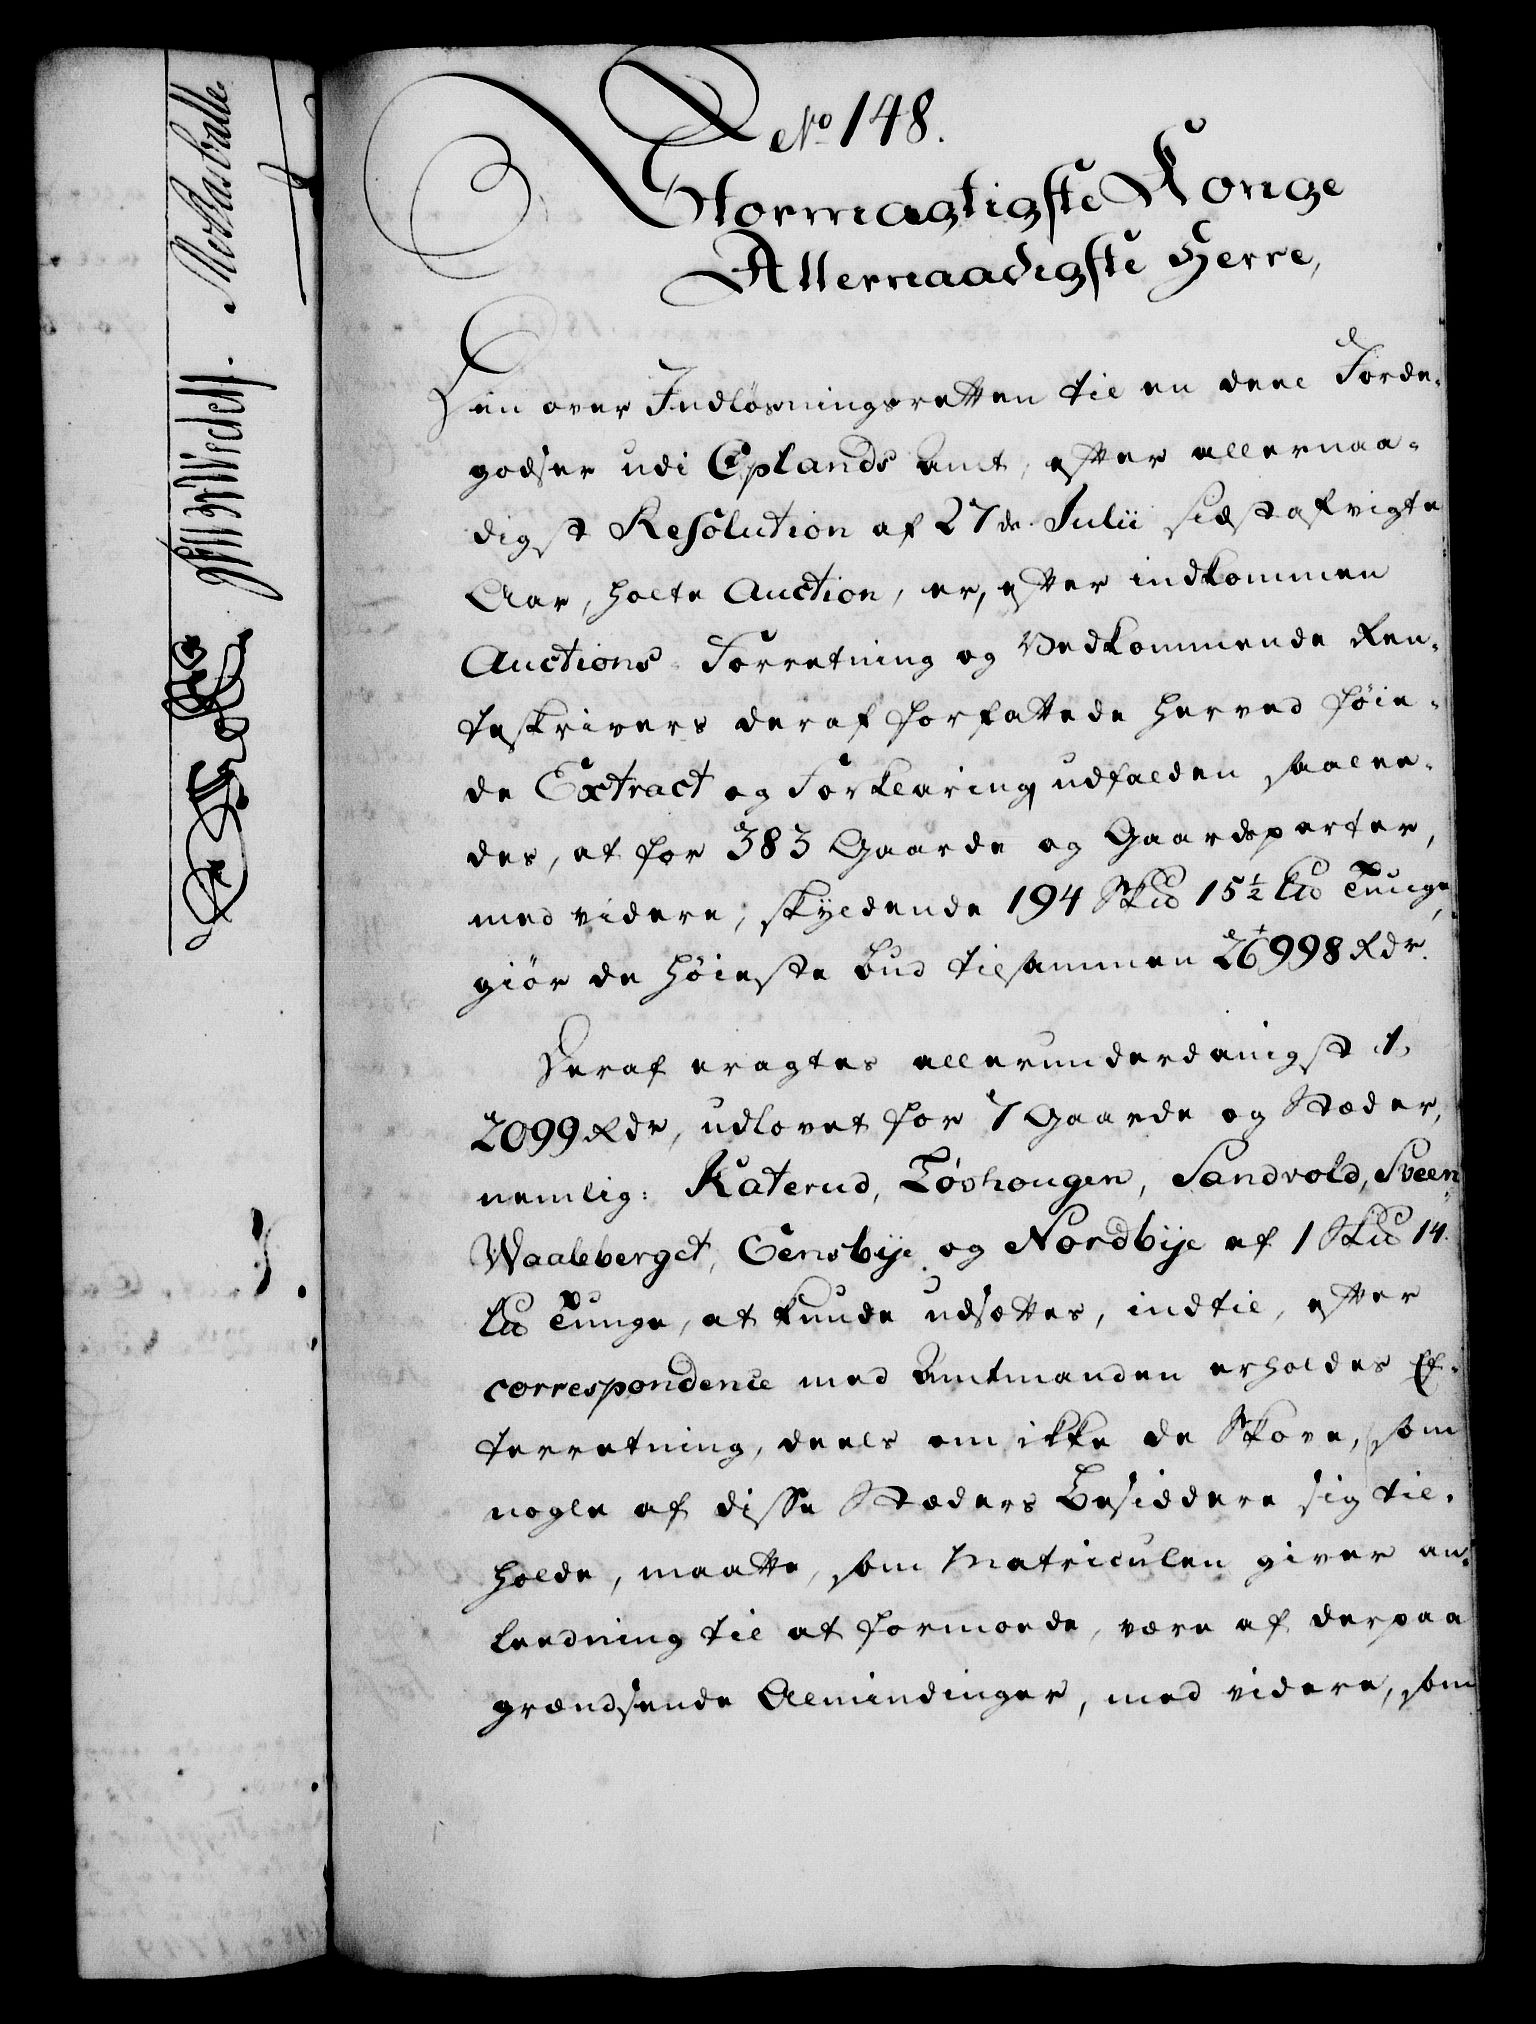 No 148.
Stormægtigste Konge
Allernaadigste Herre,
Den over Indløsningsretten til en deel Jorde-
godser udi Oplands Amt, efter allernaa-
digst Resolution af 27de Julii sidstafvigte
Aar, holte Auction, er, efter indkommen
Auctions-Forretning og Vedkommende Ren-
teskrivers deraf forfattede herved føie-
de Extract og Forklaring udfalden saalee-
des, at for 383 Gaarde og Gaardeparter,
med videre, skyldende 194 Sk℔ 15½ L℔ Tunge,
giør de høieste Bud tilsammen 26998 Rdr.
Heraf eragtes allerunderdanigst 1,
2099 Rdr, udlovet for 7 Gaarde og Stæder,
nemlig: Katerud, Løvhougen, Sandvold, Sveen
Waaleberget, Eensbÿe og Nordbÿe af 1 Sk℔ 14.
L℔ Tunge, at kunde udsættes, indtil, efter
correspondence med Amtmanden erholdes Ef-
terretning, deels om ikke de Skove, som
nogle af disse Stæders Besiddere sig til-
holde, maatte, som Matriculen giver an-
leedning til at formode, være af derpaa
grændsende Almindinger, med videre, som